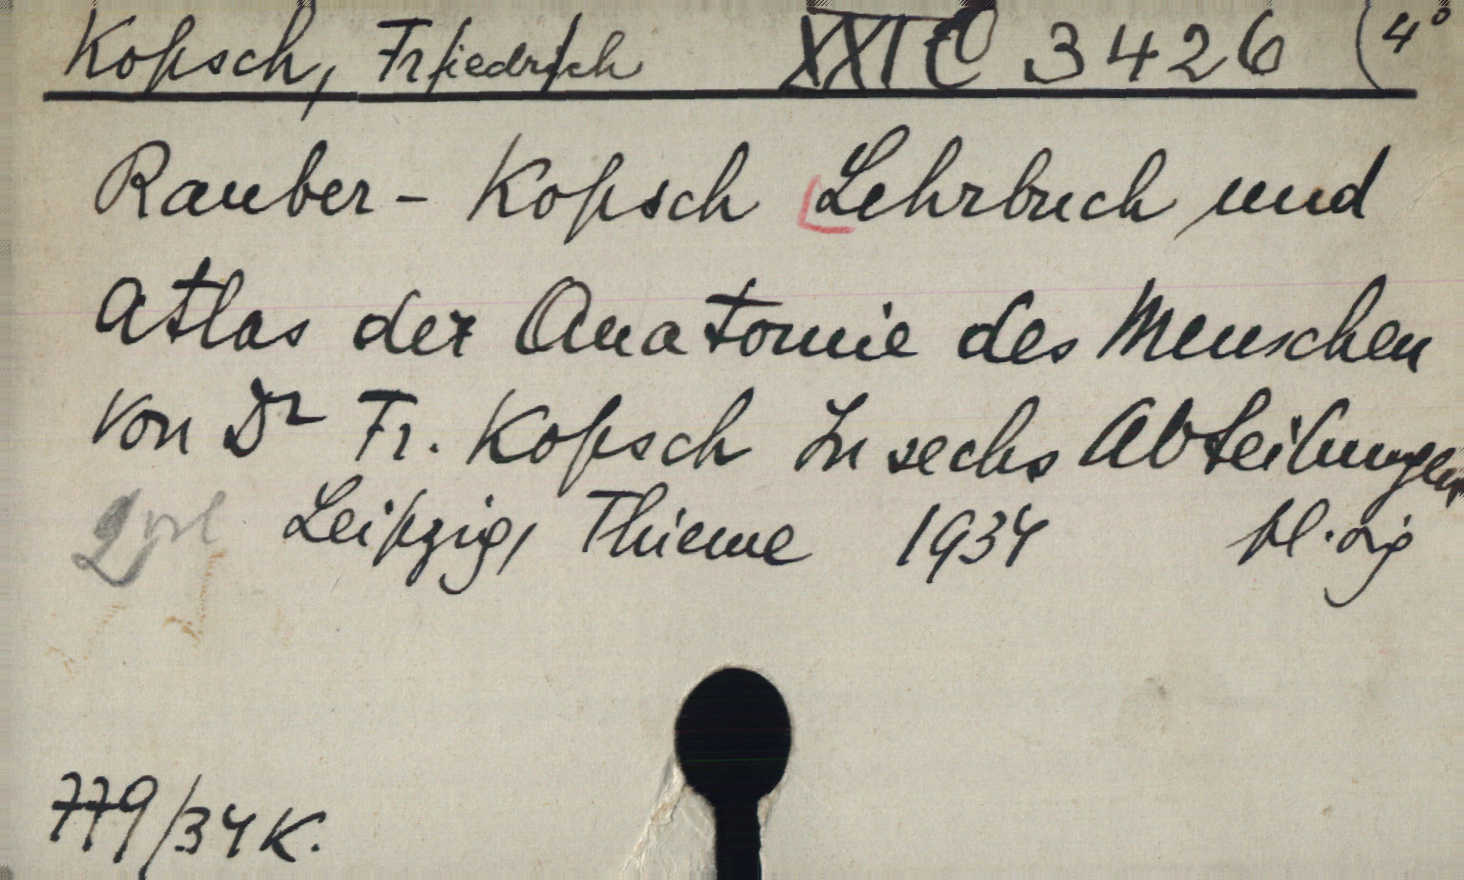 Kopsch, Fr/iedr/ich XXI C 3426 (4°
Rauber - Kopsch Lehrbuch und
Atlas der Anatomie des Menschen
von Dr Fr. Kopsch In sechs Abteilungen
Leipzig, Thieme 1934
779/34 K.